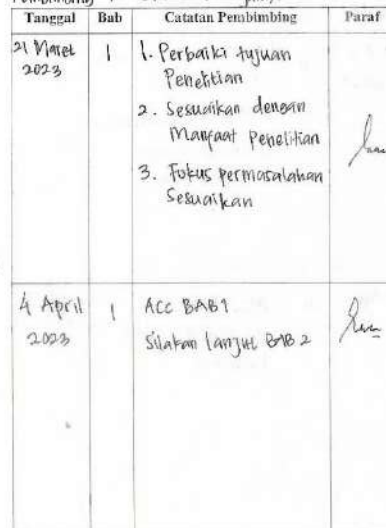 Tanggal Bab Catatan Pembimbing Paraf
21 Maret 1 1. Perbaiki tujuan
2023 Penelitian
2. Sesuaikan dengan
Manfaat Penelitian
3. Fokus permasalahan
Sesuaikan
4 April 1 Acc BAB1
2023 Silakan lanjut BAB 2